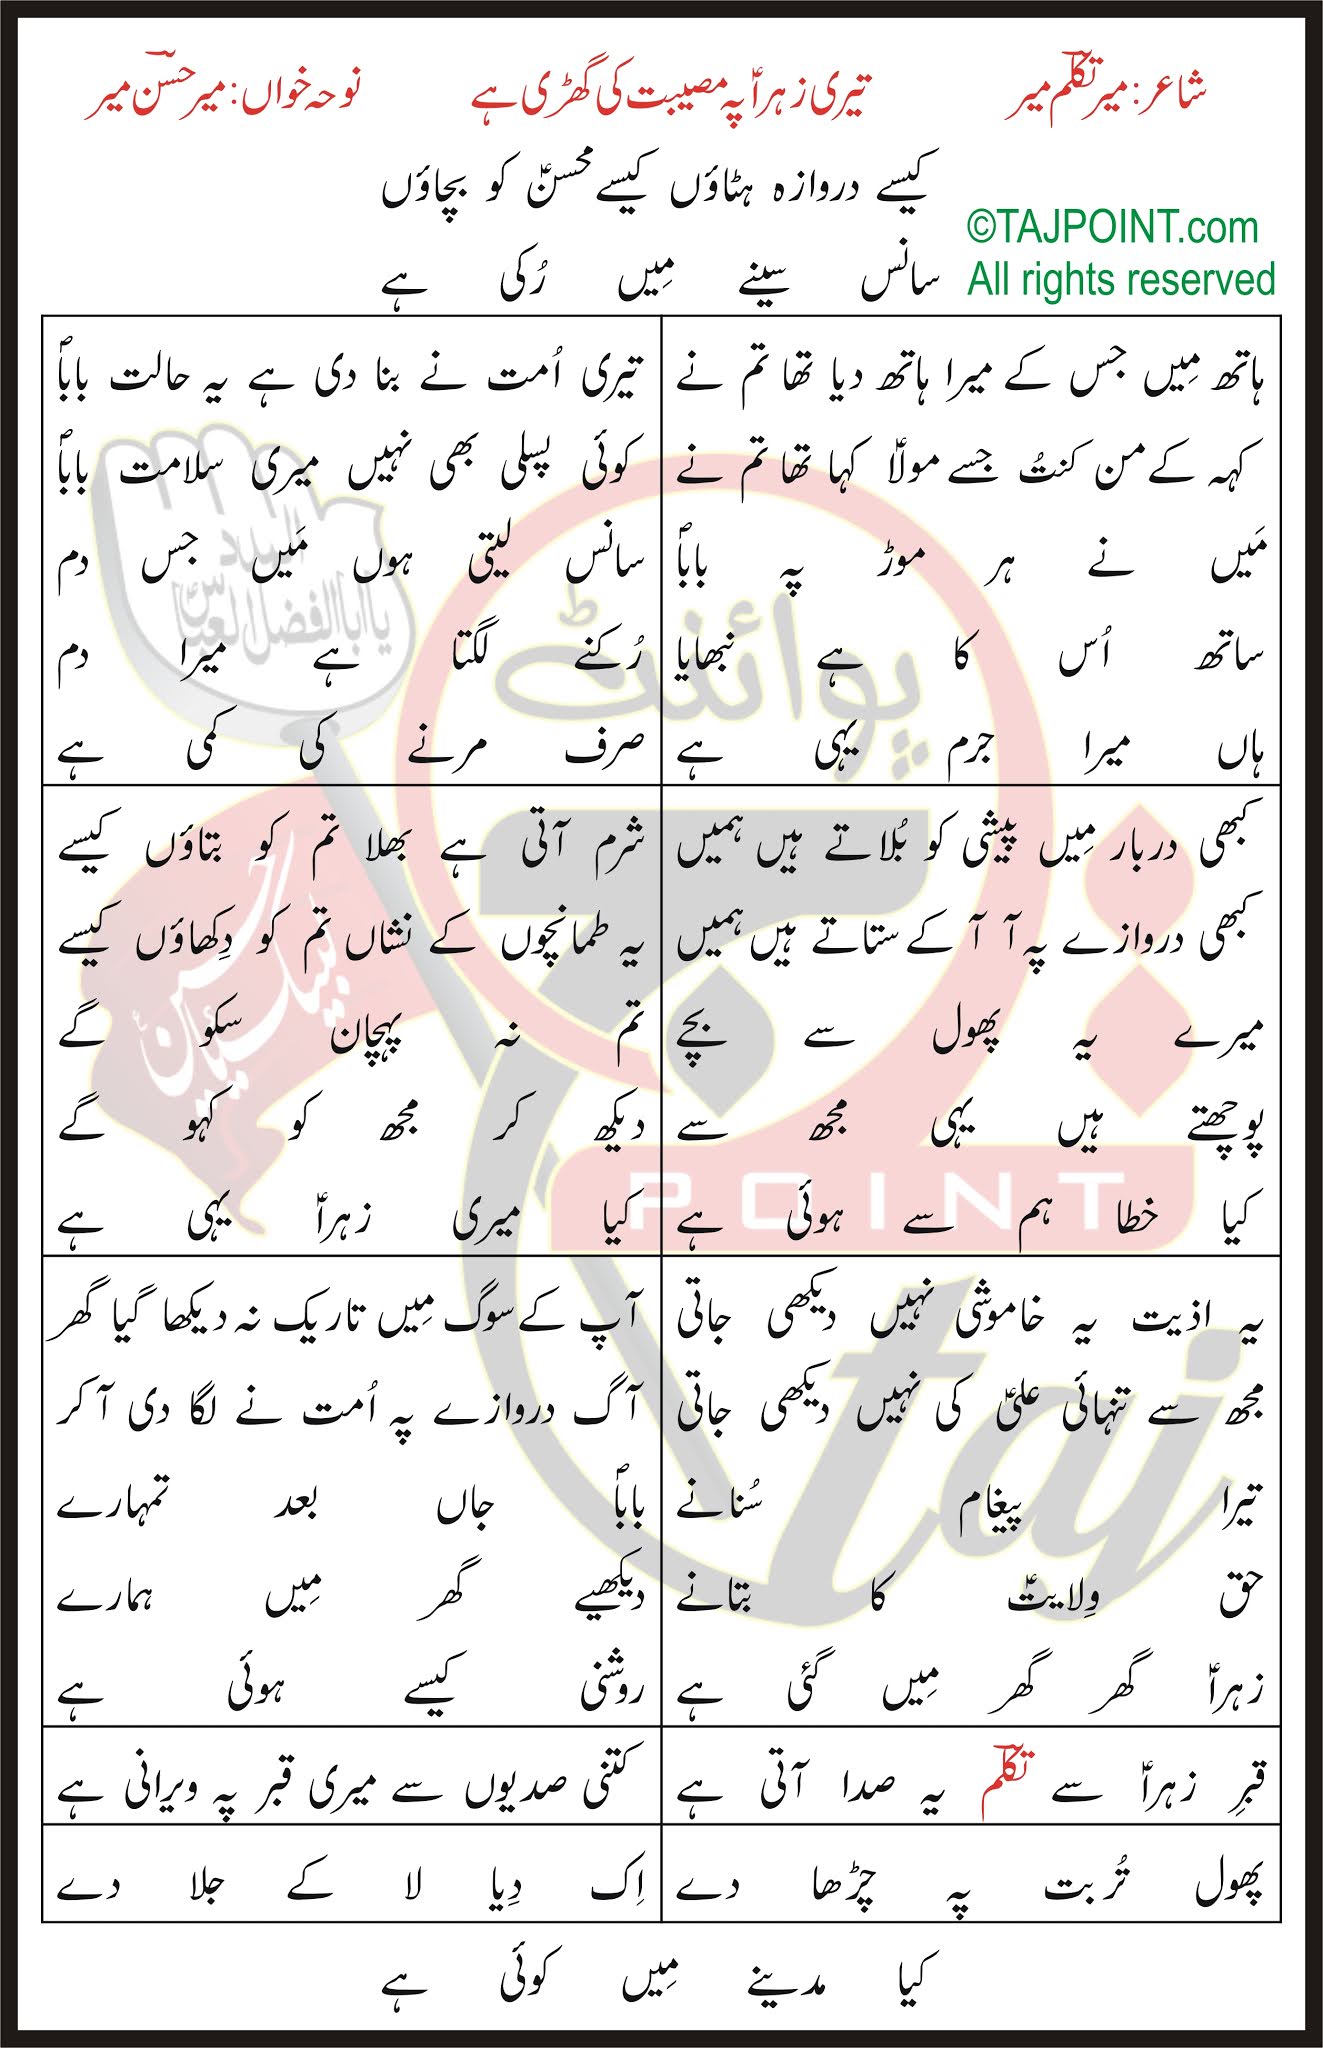 شاعر: میر تکلّم میر
تیری زہراؑ پہ مصیبت کی گھڑی ہے
نوحہ خواں: میر حسنؔ میر
کیسے دروازہ ہٹاؤں کیسے محسنؑ کو بچاؤں
سانس سینے مِیں رُکی ہے
©TAJPOINT.com
All rights reserved
ہاتھ مِیں جس کے میرا ہاتھ دیا تھا تم نے
کہہ کے من کنتُ جسے مولاؑ کہا تھا تم نے
مَیں نے ہر موڑ پہ باباؐ
ساتھ اُس کا ہے نبھایا
ہاں میرا جرم یہی ہے
تیری اُمت نے بنا دی ہے یہ حالت باباؐ
کوئی پسلی بھی نہیں میری سلامت باباؐ
سانس لیتی ہوں مَیں جس دم
رُکنے لگتا ہے میرا دم
صرف مرنے کی کمی ہے
کبھی دربار مِیں پیشی کو بُلاتے ہیں ہمیں
کبھی دروازے پہ آ آ کے ستاتے ہیں ہمیں
میرے یہ پھول سے بچے
پوچھتے ہیں یہی مجھ سے
کیا خطا ہم سے ہوئی ہے
شرم آتی ہے بھلا تم کو بتاؤں کیسے
یہ طمانچوں کے نشاں تم کو دِکھاؤں کیسے
تم نہ پہچان سکو گے
دیکھ کر مجھ کو کہو گے
کیا میری زہراؑ یہی ہے
یہ اذیت یہ خاموشی نہیں دیکھی جاتی
مجھ سے تنہائی علیؑ کی نہیں دیکھی جاتی
تیرا پیغام سُنانے
حق وِلایتؑ کا بتانے
زہراؑ گھر گھر مِیں گئی ہے
آپ کے سوگ مِیں تاریک نہ دیکھا گیا گھر
آگ دروازے پہ اُمت نے لگا دی آ کر
باباؐ جاں بعد تمہارے
دیکھیے گھر مِیں ہمارے
روشنی کیسے ہوئی ہے
قبرِ زہراؑ سے تکلّمؔ یہ صدا آتی ہے
کتنی صدیوں سے میری قبر پہ ویرانی ہے
پھول تُربت پہ چڑھا دے
اِک دِیا لا کے جلا دے
کیا مدینے مِیں کوئی ہے
پوائنٹ
POINT
taj
لبیک یا حسینؑ
یا ابا الفضل العباسؑ